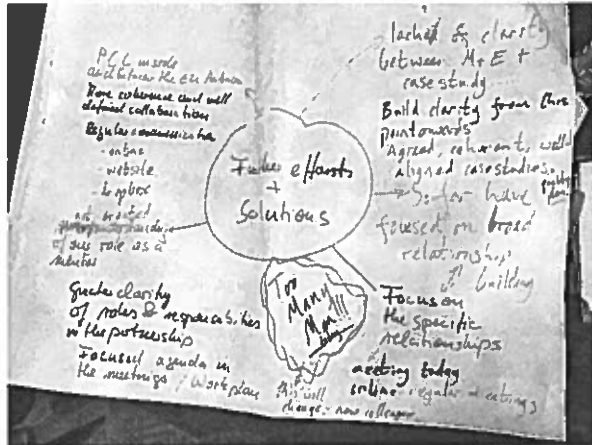 PCL inside
More coherence and well
defined collaboration
Regular communication
- online
- website
- dropbox
of our role as a
mentor
Greater clarity
of roles & responsibilities
in the partnership
Focused agenda in
the meetings / Workplan
Further efforts
+
Solutions
Too
Many
Men!!!
this will
change - new colleague
lack of clarity
between M+E +
case study
Build clarity from this
point onwards
Agreed, coherent, well
aligned case studies.
So far have
focused on broad
relationship
building
Focus on
the specific
relationships
meeting today
online - regular meetings